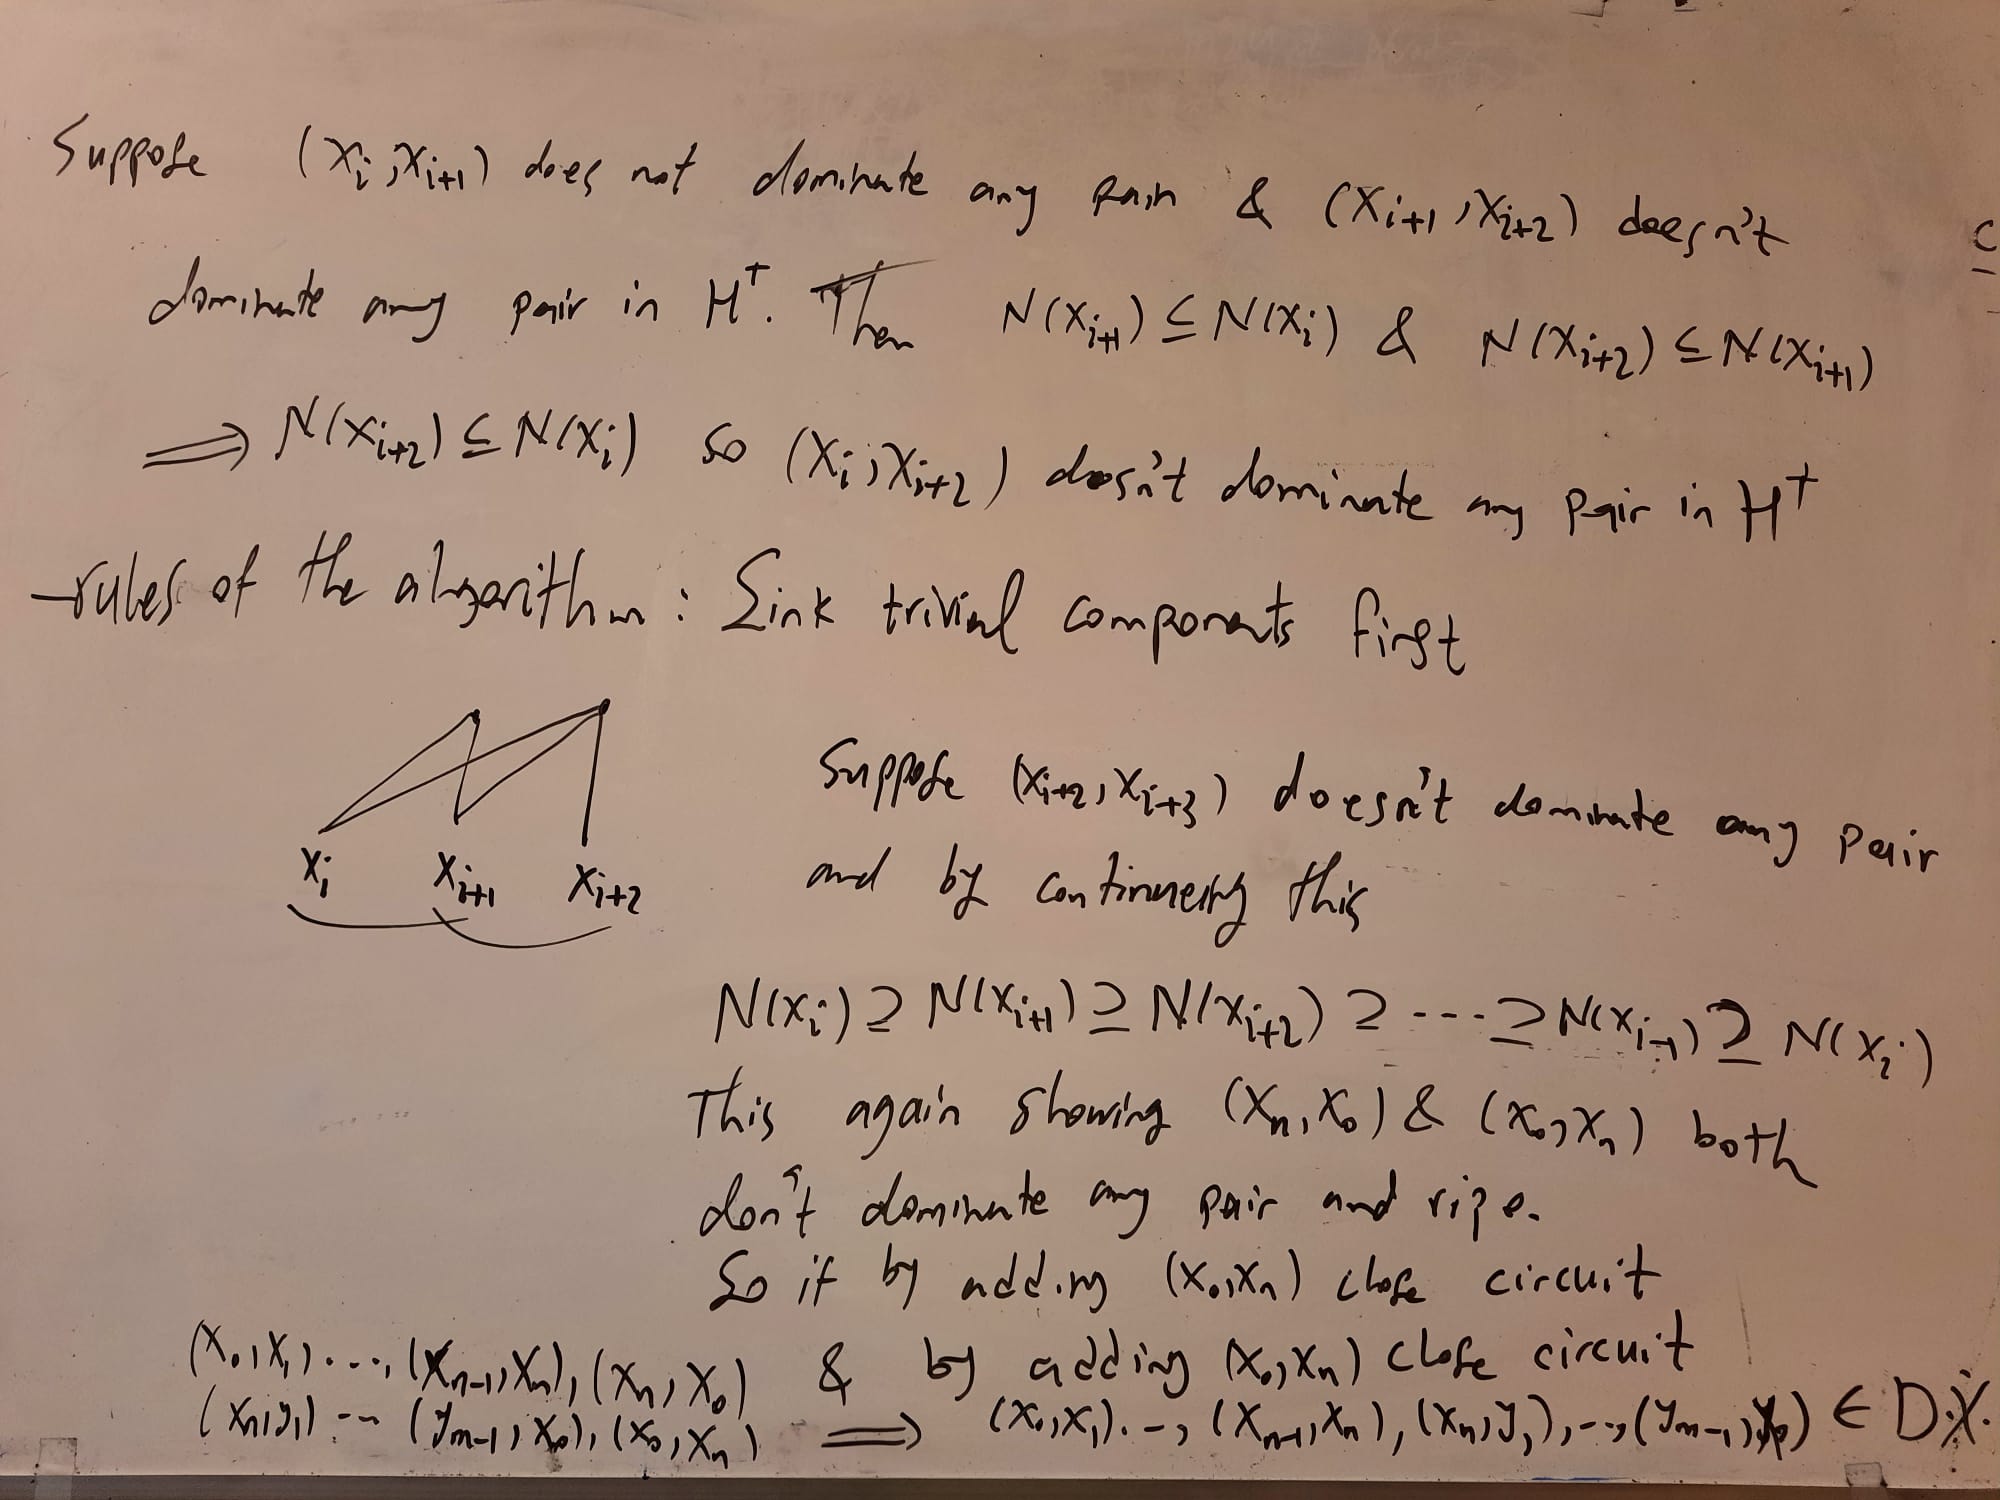 Suppose (x_i, x_{i+1}) does not dominate any pair & (x_{i+1}, x_{i+2}) doesn't
dominate any pair in H^+. Then N(x_{i+1}) ⊆ N(x_i) & N(x_{i+2}) ⊆ N(x_{i+1})
⟹ N(x_{i+2}) ⊆ N(x_i) so (x_i, x_{i+2}) doesn't dominate any pair in H^+
-rules of the algorithm: Sink trivial components first
x_i x_{i+1} x_{i+2}
Suppose (x_{i+2}, x_{i+3}) doesn't dominate any pair
and by continueing this
N(x_i) ⊇ N(x_{i+1}) ⊇ N(x_{i+2}) ⊇ ---⊇ N(x_{i-1}) ⊇ N(x_i)
This again showing (x_n, x_0) & (x_0, x_n) both
don't dominate any pair and ripe.
So if by adding (x_0, x_n) close circuit
(x_0, x_1)..., (x_{n-1}, x_n), (x_n, x_0) & by adding (x_0, x_n) close circuit
(x_n, y_1) -- (y_{m-1}, x_0), (x_0, x_n) ⟹ (x_0, x_1).-, (x_{n-1}, x_n), (x_n, y_1), --, (y_{m-1}, ) ∈ D.X.
C